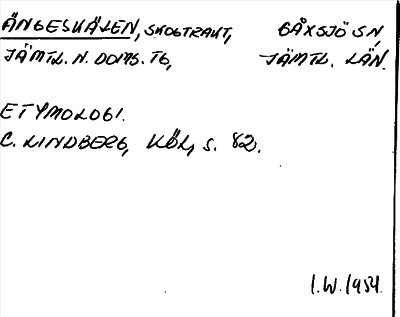 ÄNGESKÄLEN, SKOGTRAKT, GÅXSJÖ SN,
JÄMTL. N. DOMS. TG, JÄMTL. LÄN.
ETYMOLOGI.
C. LINDBERG, KÖL, s. 82.
I.W. 1954.